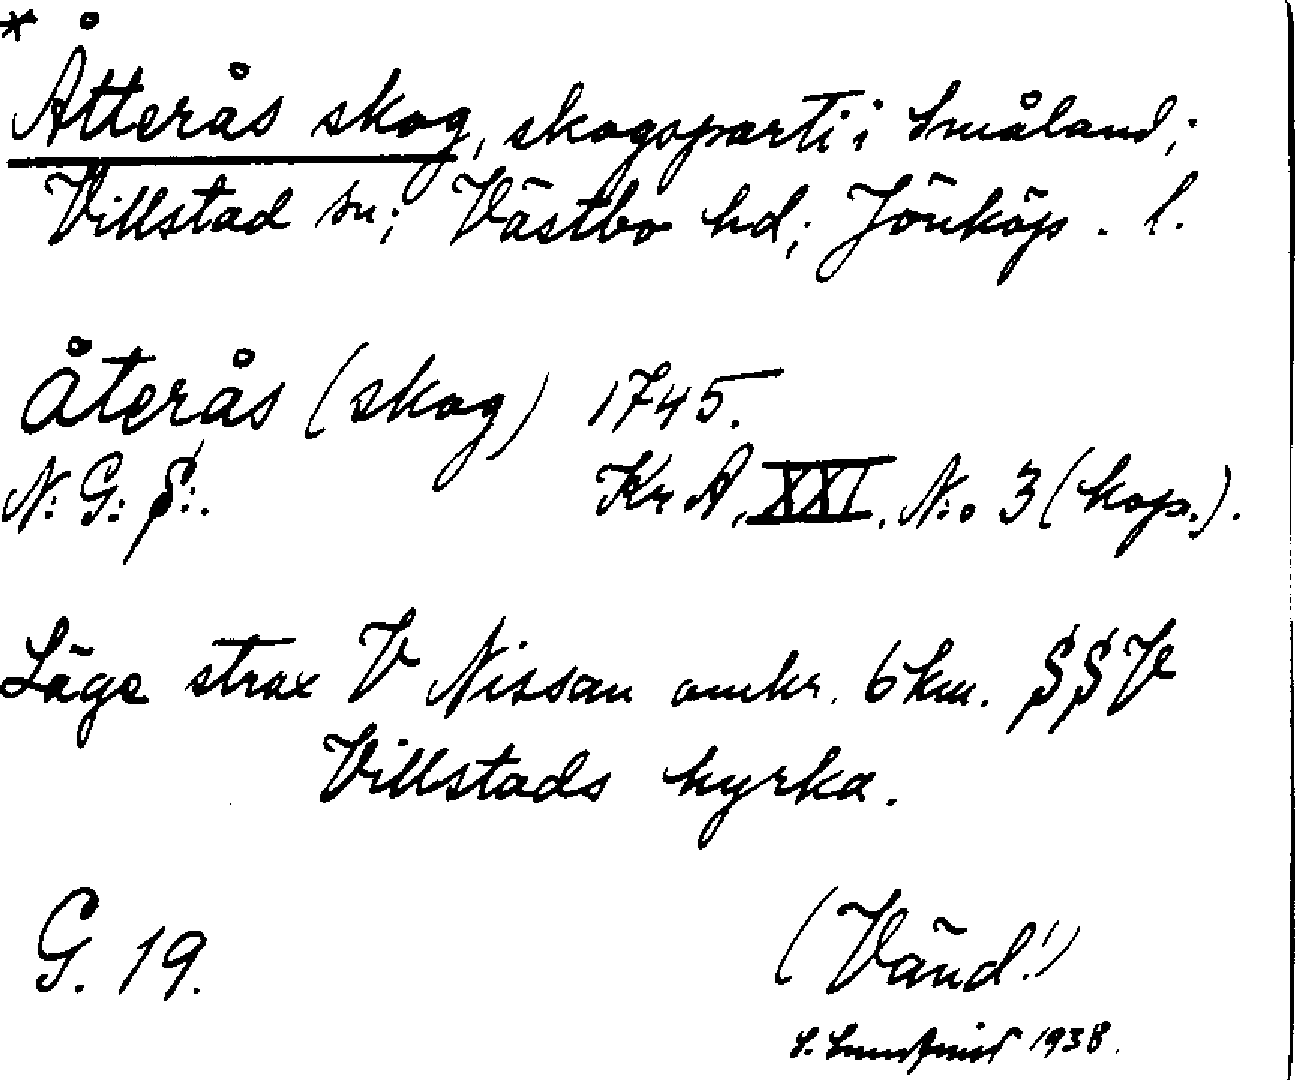 * Åtterås skog, skogsparti i Småland;
Villstad sn; Västbo hd; Jönköp. l.
Återås (skog) 1745.
N: G: S:.
Kr A, XXI, N:o 3 (kop.).
Läge strax V Nissan omkr. 6 km. SSV
Villstads kyrka.
G. 19.
(Vänd!)
1938.